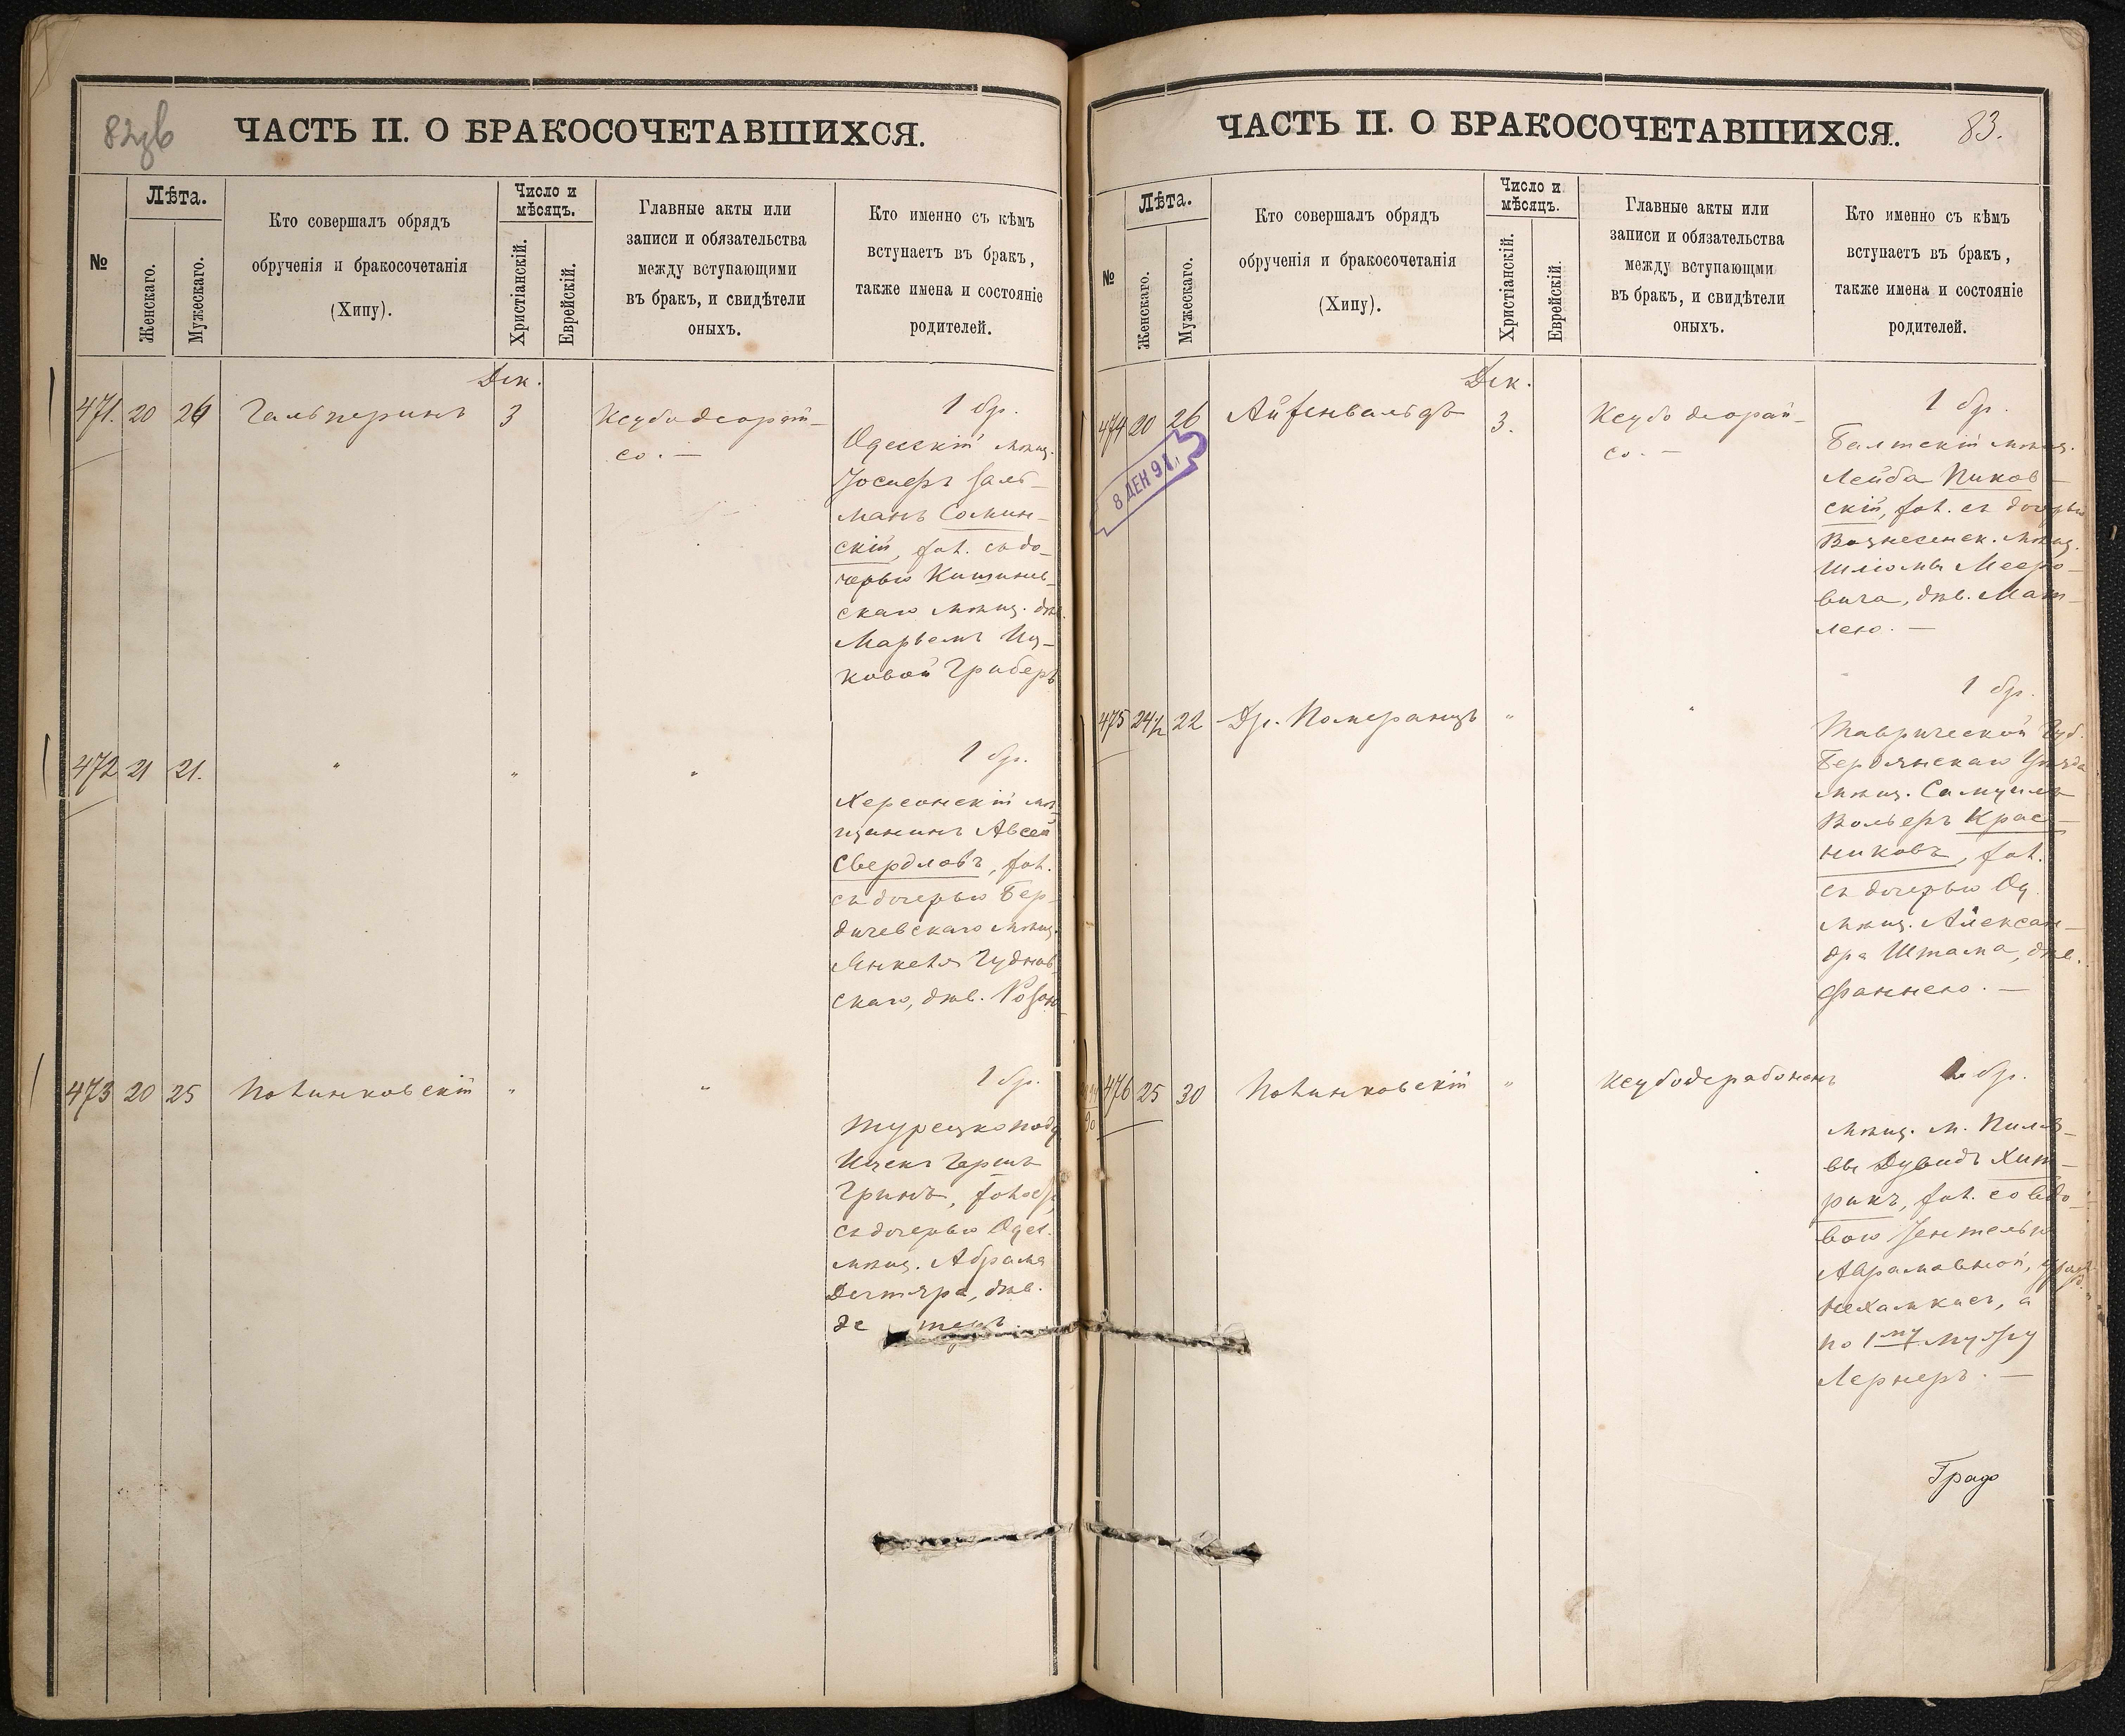 82 об
ЧАСТЬ II. О БРАКОСОЧЕТАВШИХСЯ.
№
Лѣта.
Женскаго.
Мужескаго.
Кто совершалъ обрядъ
обрученія и бракосочетанія
(Хипу).
Число и
мѣсяцъ.
Христіанскій.
Еврейскій.
Главные акты или
записи и обязательства
между вступающими
въ бракъ, и свидѣтели
оныхъ.
Кто именно съ кѣмъ
вступаетъ въ бракъ,
также имена и состояніе
родителей.
Дек.
471. 20 26 Гальперинъ 3 Ксубо деорай-
со. —
1 бр.
Одесскій мѣщ.
Іосифъ Заль-
манъ Сомин-
скій, хол. съ до-
черью Кишинев-
скаго мѣщ. дѣв.
Марьемъ Иц-
ковой Гриберъ
472 21 21. " " "
1 бр.
Херсонскій мѣ-
щанинъ Авсей
Свердловъ, хол.
съ дочерью Бер-
дичевскаго мѣщ.
Янкеля Чуднов-
скаго, дѣв.
473 20 25 Полинковскій " "
1 бр.
Турецкопод
Ицекъ Гершъ
Гринъ,
съ дочерью Одес.
мѣщ. Абрама
Дегтяра, дѣв.
ЧАСТЬ II. О БРАКОСОЧЕТАВШИХСЯ.
83.
№
Лѣта.
Женскаго.
Мужескаго.
Кто совершалъ обрядъ
обрученія и бракосочетанія
(Хипу).
Число и
мѣсяцъ.
Христіанскій.
Еврейскій.
Главные акты или
записи и обязательства
между вступающми
въ бракъ, и свидѣтели
оныхъ.
Кто именно съ кѣмъ
вступаетъ въ бракъ,
также имена и состояніе
родителей.
Дек.
474 20 26 Айзенвальдъ 3. Ксубо деорай-
со. —
8 ДЕК 91
1 бр.
Балтскій мѣщ.
Лейба Пиков-
скій, хол. съ дочерью
Вознесенск. мѣщ.
Шліомы Мееро-
вича, дѣв. Мат-
лею. —
475 24½ 22 Др. Померанцъ " "
1 бр.
Таврической Губ.
Бердянскаго Уѣзда
мѣщ. Самуилъ
Вольфъ Крас-
никовъ, хол.
съ дочерью Од.
мѣщ. Алексан-
дра Штама, дѣв.
Фаннею. —
476 25 30 Полинковскій " Ксубодерабононъ
2 бр.
мѣщ. м. Пиляв-
вы Дувидъ Хит-
рикъ, хол. со вдо-
вою Ентелью
Аврамовной,
а
по 1му мужу
Лернеръ. —
Градо